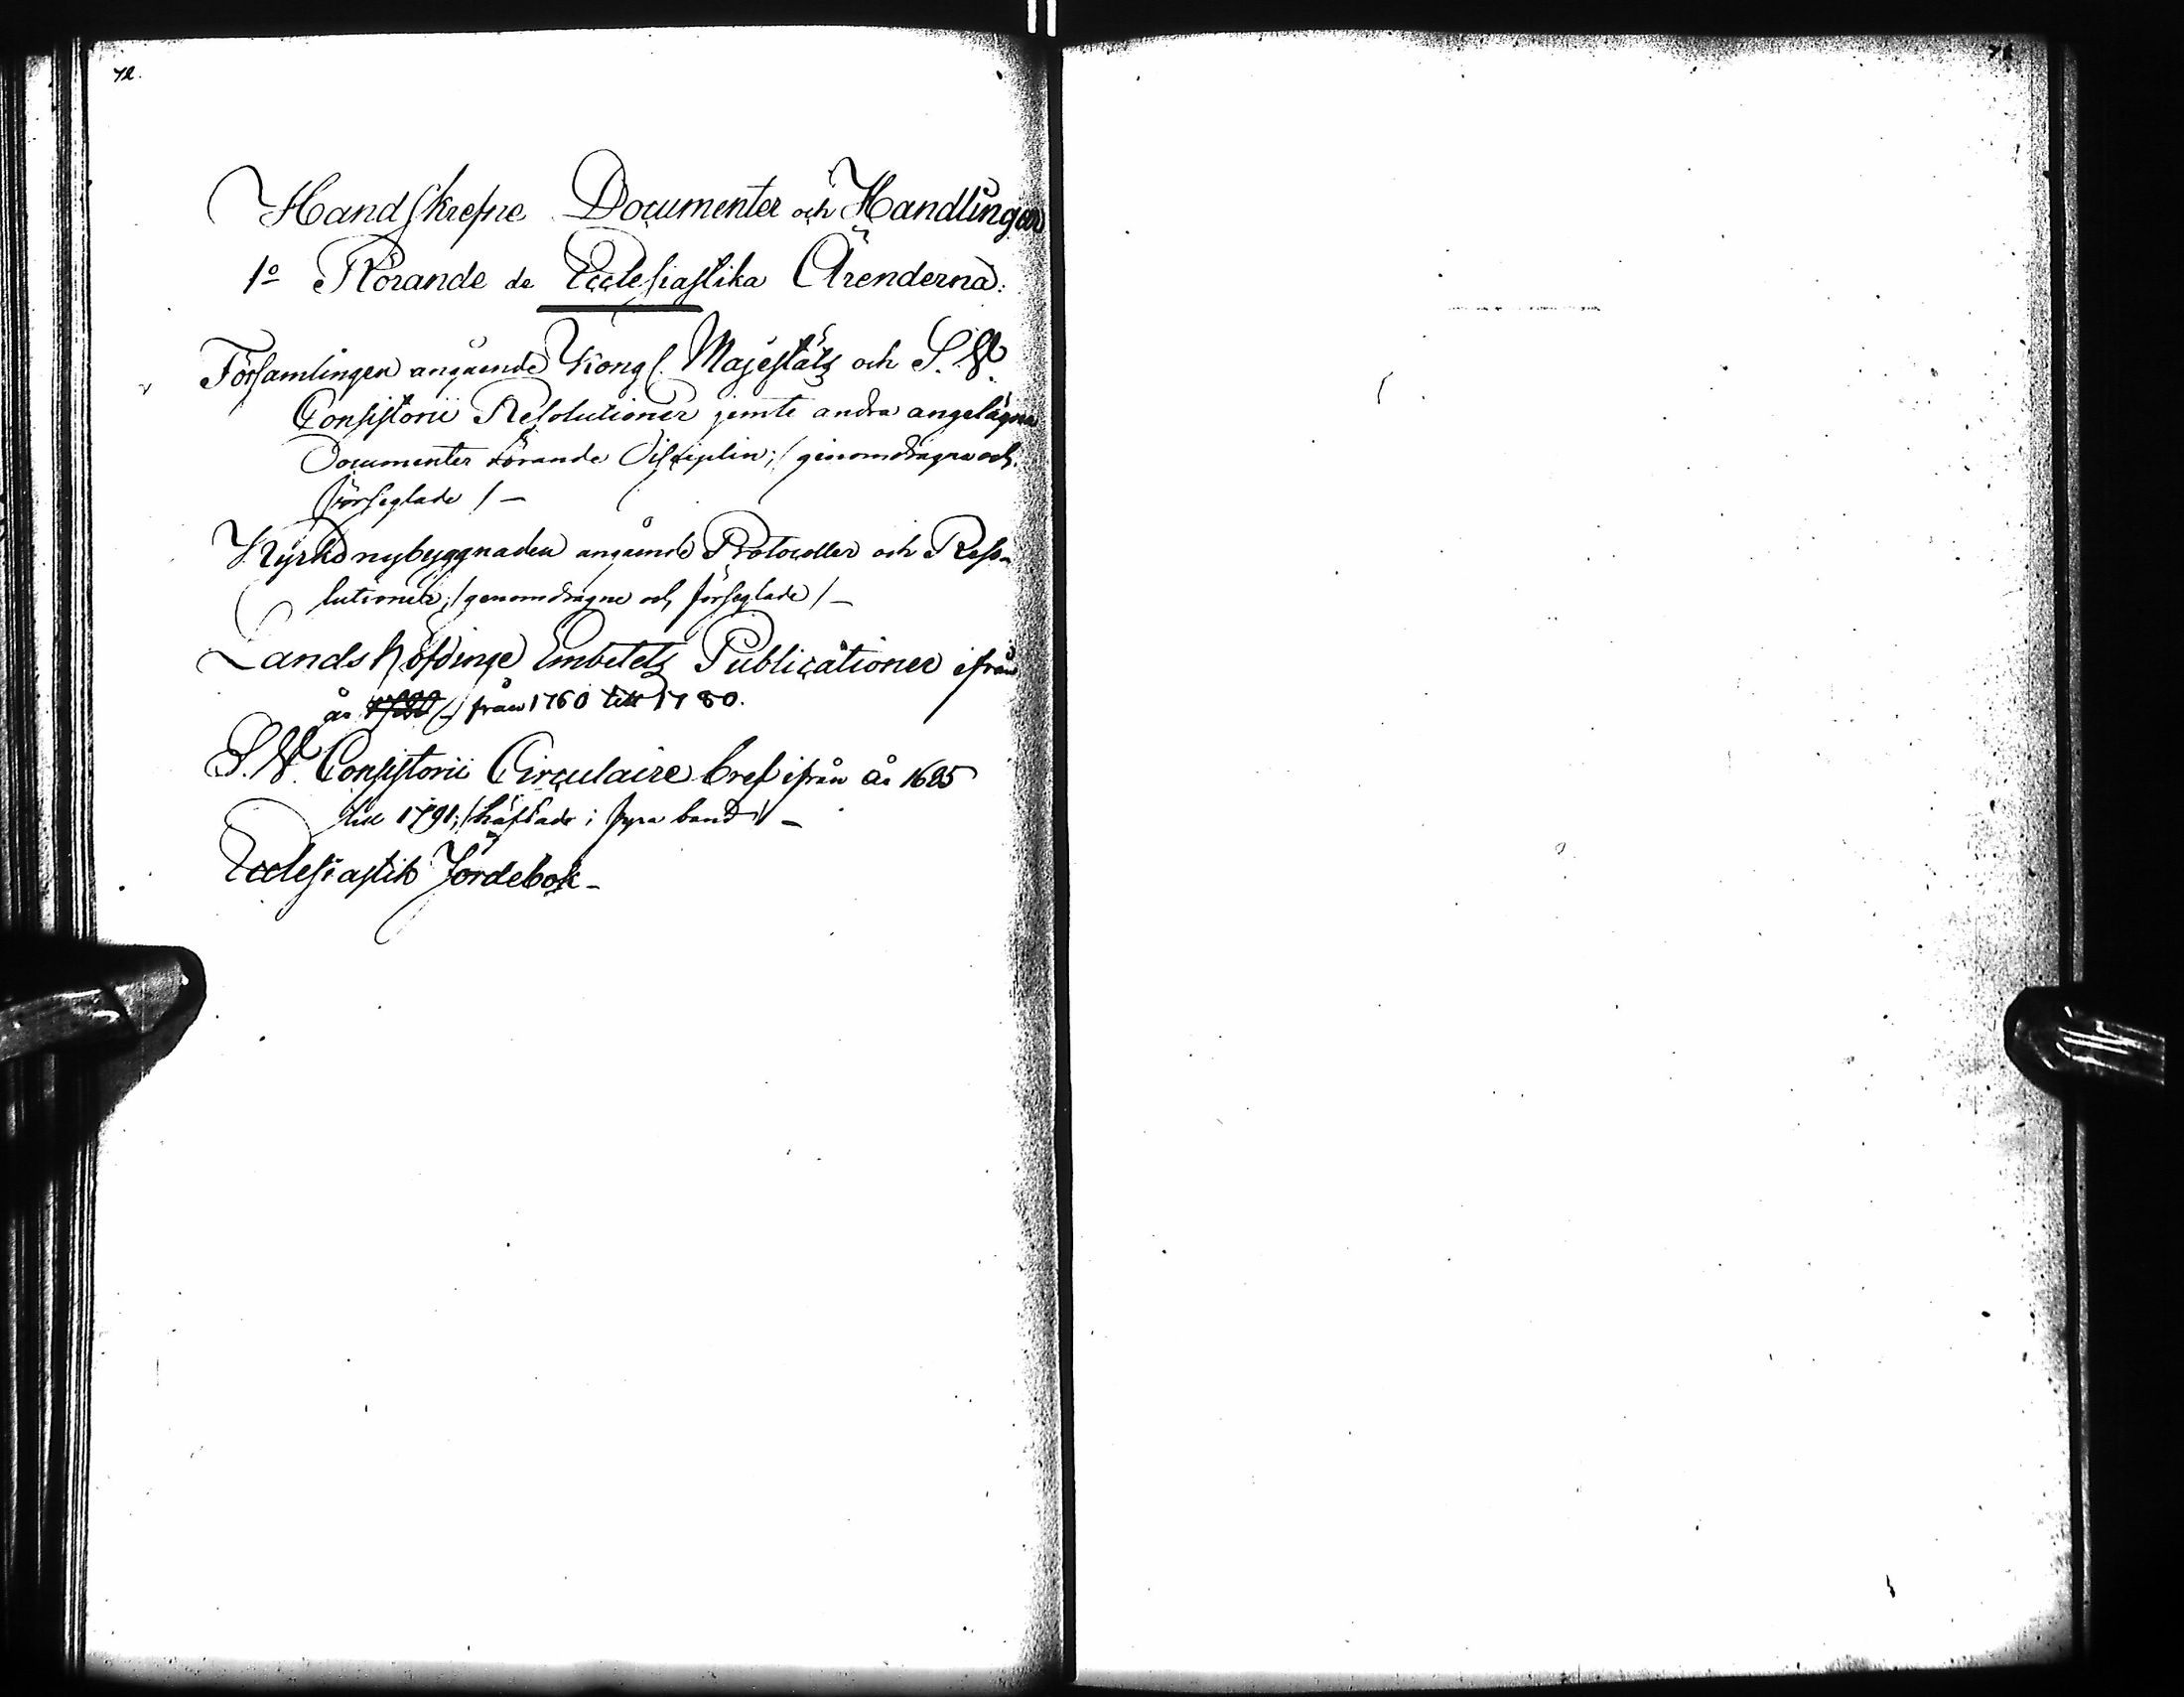 72.
Handskrefne Documenter och Handlingar
1o Rörande de Ecclesiastika Ärenderna.
Församlingen angående Kongl. Majestäts och S. V.
Consistorii Resolutioner jemte andra angelägna
Documenter rörande Disciplin; / genomdragne och
förseglade / —
Kyrkonybyggnaden angående Protocoller och Reso-
lutioner; / genomdragne och förseglade / —
Landshöfdinge Embetets Publicationer ifrån
år från 1760 till 1780.
S. V. Consistorii Circulaire bref ifrån år 1685
till 1791; / häftade i fyra band / —
Ecclesiastik Jordebok —